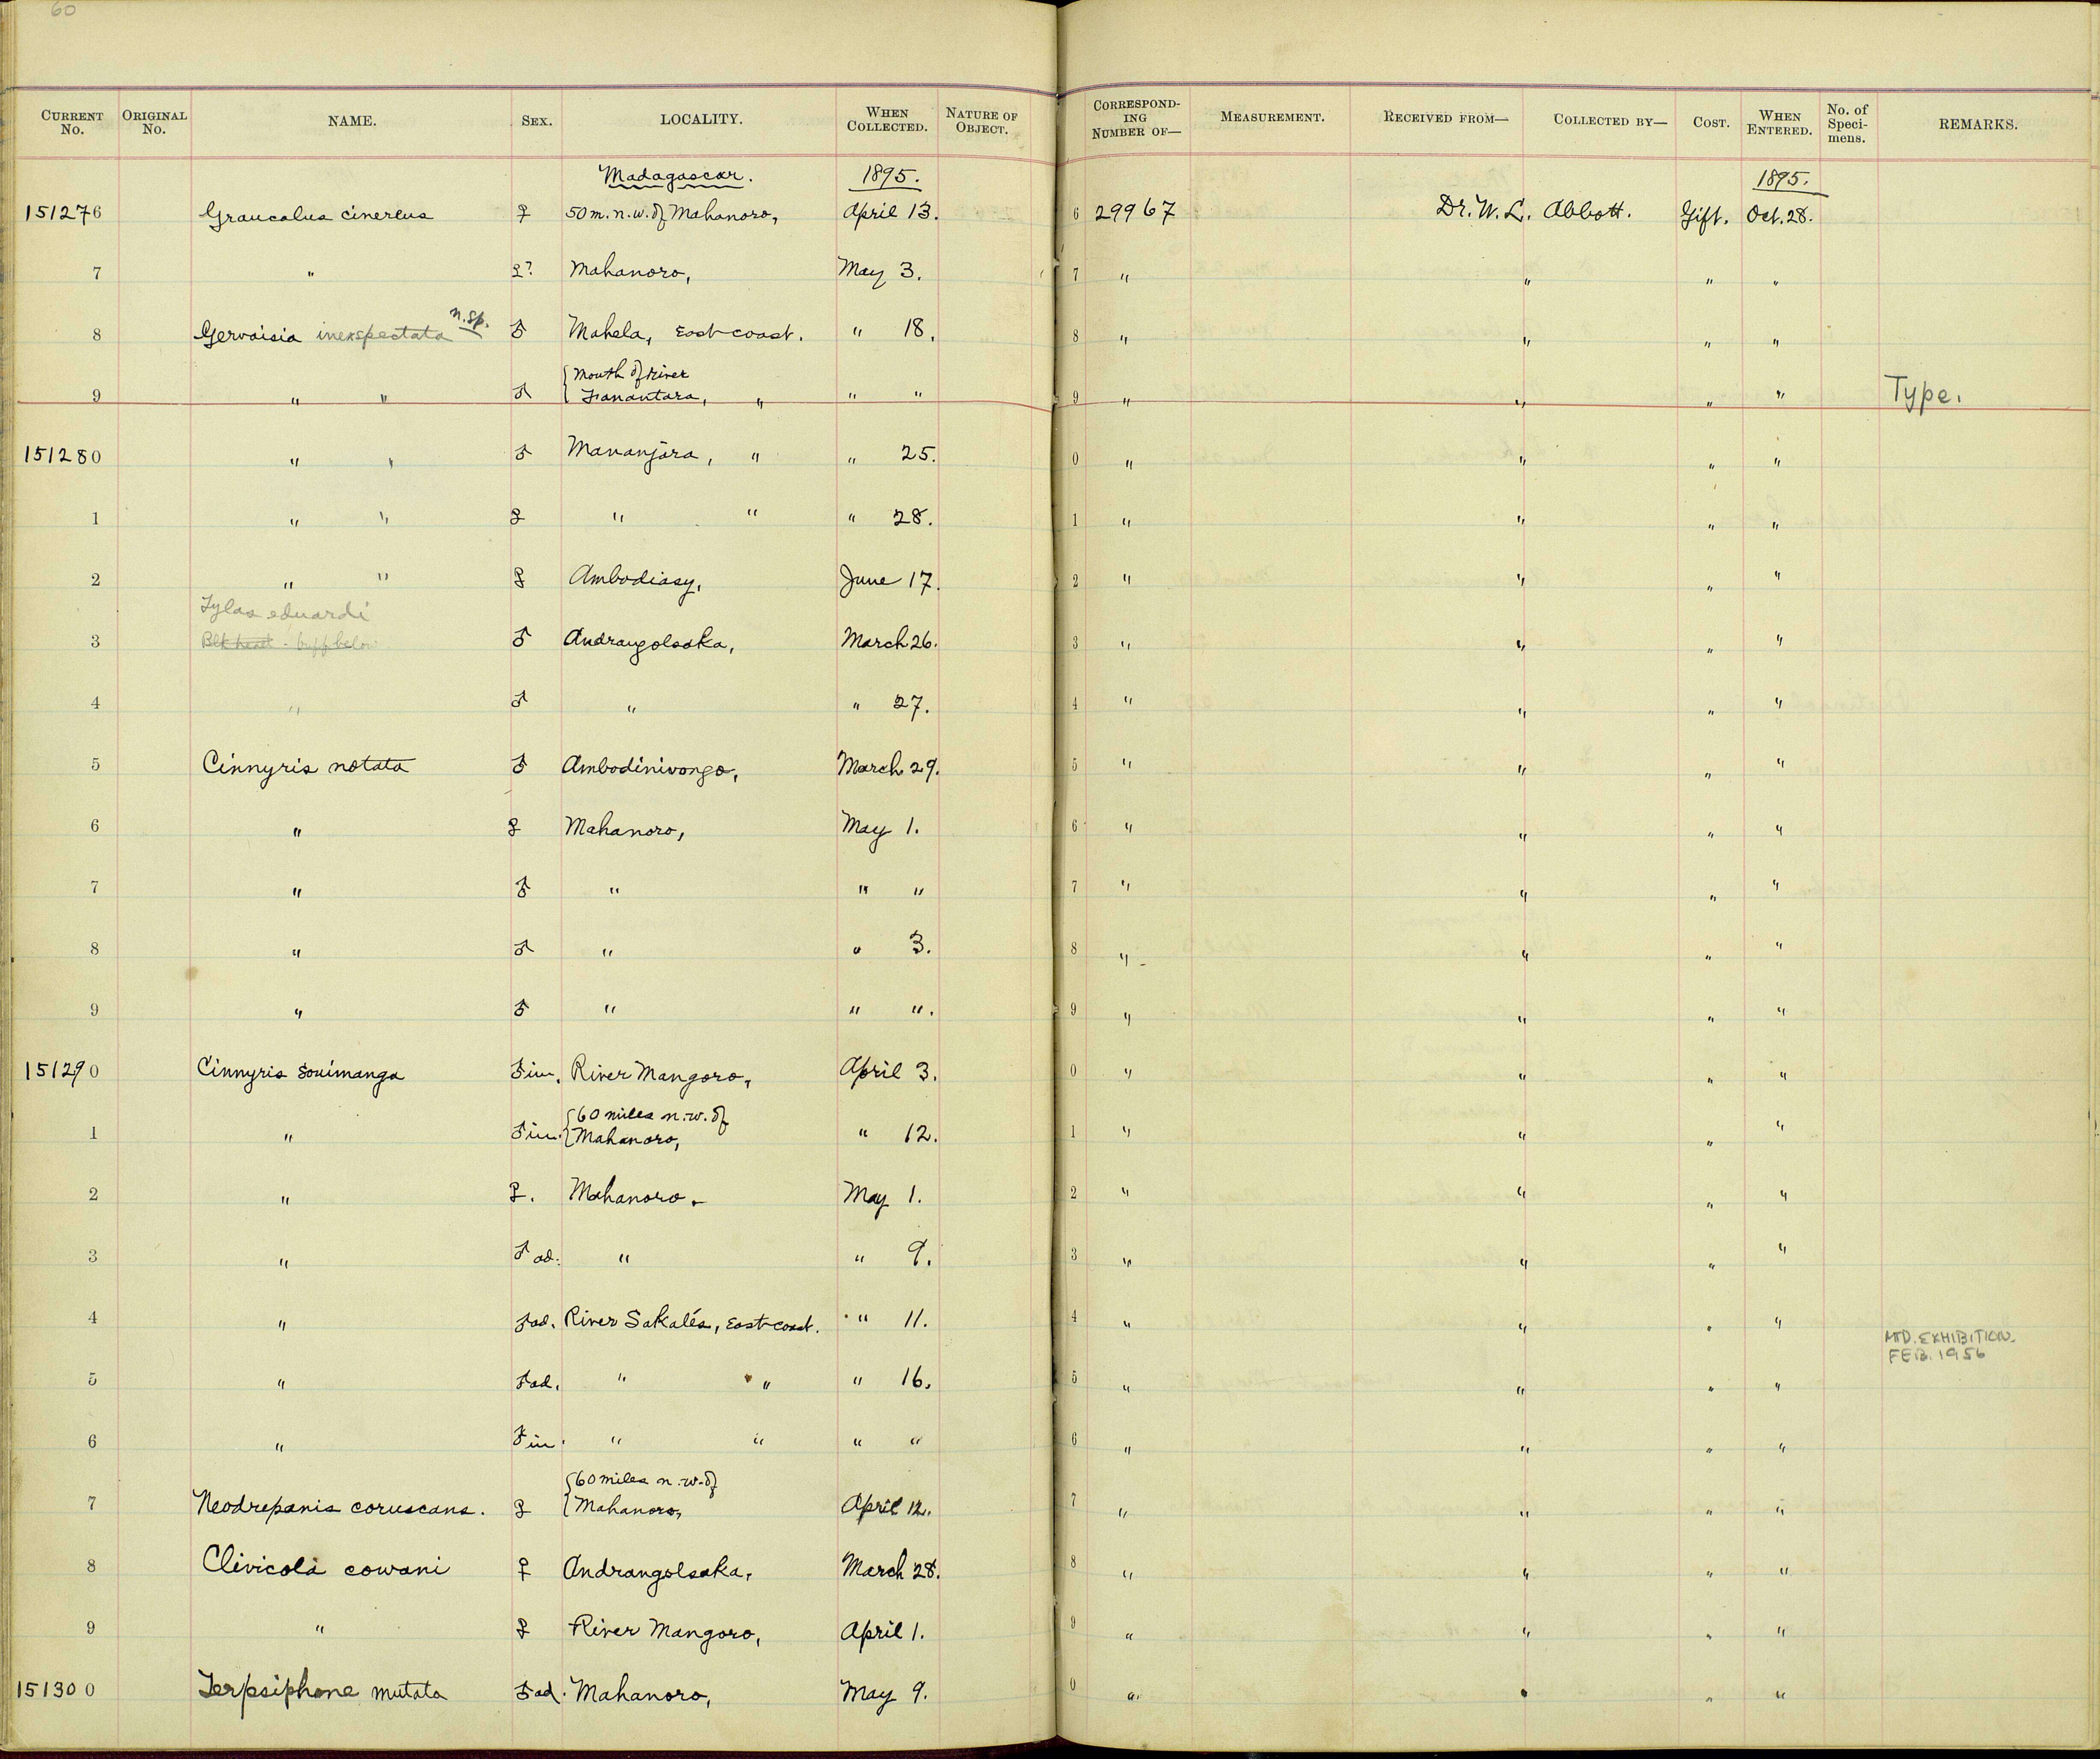 60
CURRENT No. ORIGINAL No. NAME. SEX. LOCALITY. WHEN COLLECTED. NATURE OF OBJECT. CORRESPONDING NUMBER OF— MEASUREMENT. RECEIVED FROM— COLLECTED BY— COST. WHEN ENTERED. No. of Specimens. REMARKS.
Madagascar. 1895. 1895.
151276 Graucalus cinereus ♀ 50 m. n.w. of Mahanoro, April 13. 6 29967 Dr. W. L. Abbott. Gift. Oct. 28.
7 " ♀? Mahanoro, May 3. 7 " " " "
8 Gervaisia inexspectata n. sp. ♂ Mahela, East coast. " 18. 8 " " " "
9 " " ♂ { Mouth of River Fanantara, " " " 9 " " " " Type.
151280 " " ♂ Mananjara, " " 25. 0 " " " "
1 " " ♀ " " " 28. 1 " " " "
2 " " ♀ Ambodiasy, June 17. 2 " " " "
Tylas eduardi
3 Blk head - buff below ♂ Andrangoloaka, March 26. 3 " " " "
4 " ♂ " " 27. 4 " " " "
5 Cinnyris notata ♂ Ambodinivongo, March 29. 5 " " " "
6 " ♀ Mahanoro, May 1. 6 " " " "
7 " ♂ " " " 7 " " " "
8 " ♂ " " 3. 8 " " " "
9 " ♂ " " ". 9 " " " "
151290 Cinnyris souimanga ♂ im. River Mangoro, April 3. 0 " " " "
1 " ♂ im. { 60 miles n.w. of Mahanoro, " 12. 1 " " " "
2 " ♀. Mahanoro. May 1. 2 " " " "
3 " ♂ ad. " " 9. 3 " " " "
4 " ♂ ad. River Sakaléa, East coast. " 11. 4 " " " "
MTD. EXHIBITION.
FEB. 1956
5 " ♂ ad. " " " 16. 5 " " " "
6 " ♂ im. " " " " 6 " " " "
7 Neodrepanis coruscans. ♀ { 60 miles n.w. of Mahanoro, April 12. 7 " " " "
8 Clivicola cowani ♀ Andrangoloaka, March 28. 8 " " " "
9 " ♀ River Mangoro, April 1. 9 " " " "
151300 Terpsiphone mutata ♂ ad. Mahanoro, May 9. 0 " " " "